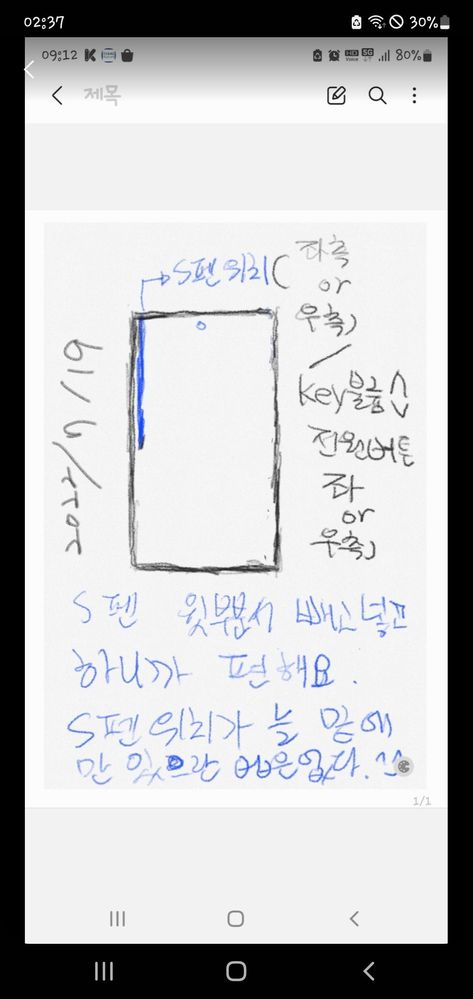 02:37
30%
09:12 K
HD Voice 5G 80%
제목
S펜위치(좌측
or
우측)
Key볼륨
전원버튼
좌
or
우측)
2022/7/19
S펜 윗부분서 빼고넣고
하니까 편해요.
S펜위치가 늘 밑에
만 있으란 법은없다.
1/1